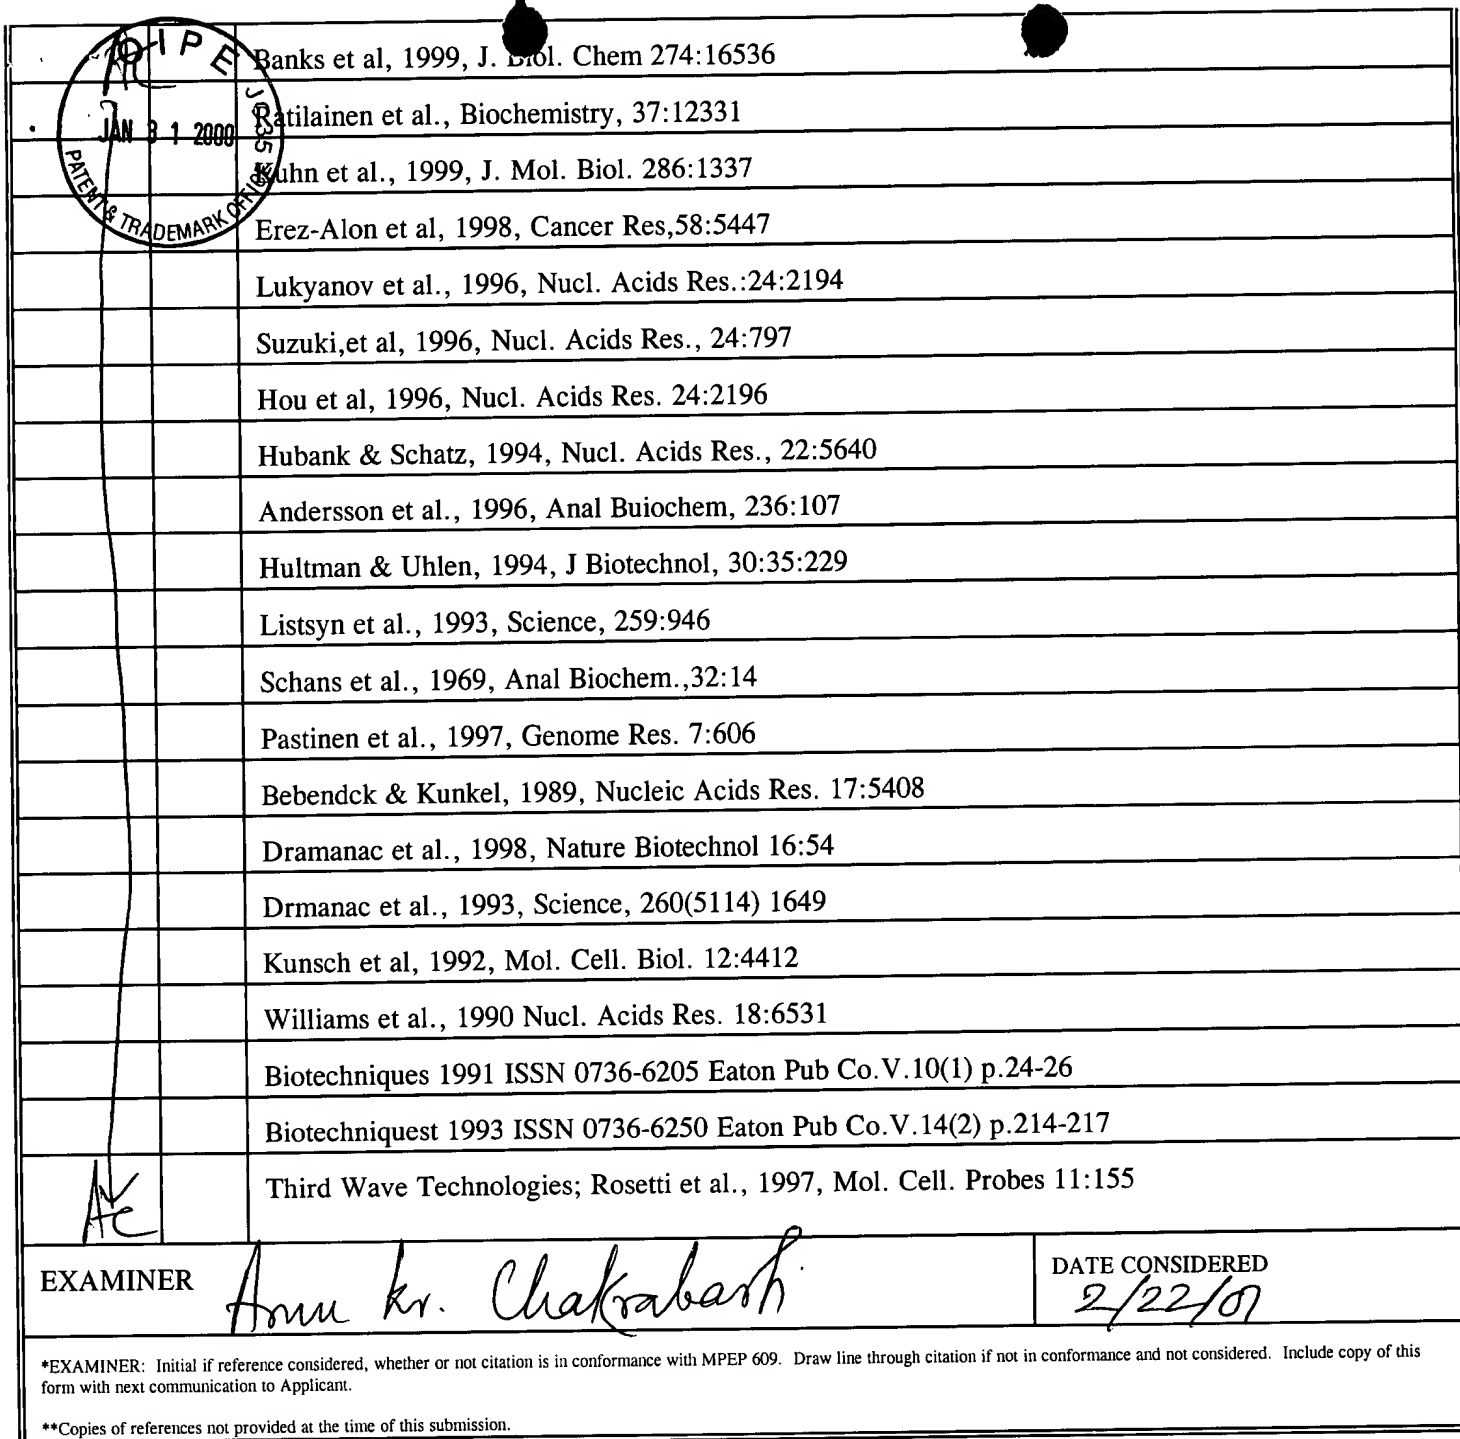 OIPE JC35
JAN 31 2000
PATENT & TRADEMARK OFFICE
AC
Banks et al, 1999, J. Biol. Chem 274:16536
Ratilainen et al., Biochemistry, 37:12331
Kuhn et al., 1999, J. Mol. Biol. 286:1337
Erez-Alon et al, 1998, Cancer Res,58:5447
Lukyanov et al., 1996, Nucl. Acids Res.:24:2194
Suzuki,et al, 1996, Nucl. Acids Res., 24:797
Hou et al, 1996, Nucl. Acids Res. 24:2196
Hubank & Schatz, 1994, Nucl. Acids Res., 22:5640
Andersson et al., 1996, Anal Buiochem, 236:107
Hultman & Uhlen, 1994, J Biotechnol, 30:35:229
Listsyn et al., 1993, Science, 259:946
Schans et al., 1969, Anal Biochem.,32:14
Pastinen et al., 1997, Genome Res. 7:606
Bebendck & Kunkel, 1989, Nucleic Acids Res. 17:5408
Dramanac et al., 1998, Nature Biotechnol 16:54
Drmanac et al., 1993, Science, 260(5114) 1649
Kunsch et al, 1992, Mol. Cell. Biol. 12:4412
Williams et al., 1990 Nucl. Acids Res. 18:6531
Biotechniques 1991 ISSN 0736-6205 Eaton Pub Co.V.10(1) p.24-26
Biotechniquest 1993 ISSN 0736-6250 Eaton Pub Co.V.14(2) p.214-217
Third Wave Technologies; Rosetti et al., 1997, Mol. Cell. Probes 11:155
EXAMINER Arun kr. Chakrabarti
DATE CONSIDERED
2/22/01
*EXAMINER: Initial if reference considered, whether or not citation is in conformance with MPEP 609. Draw line through citation if not in conformance and not considered. Include copy of this
form with next communication to Applicant.
**Copies of references not provided at the time of this submission.